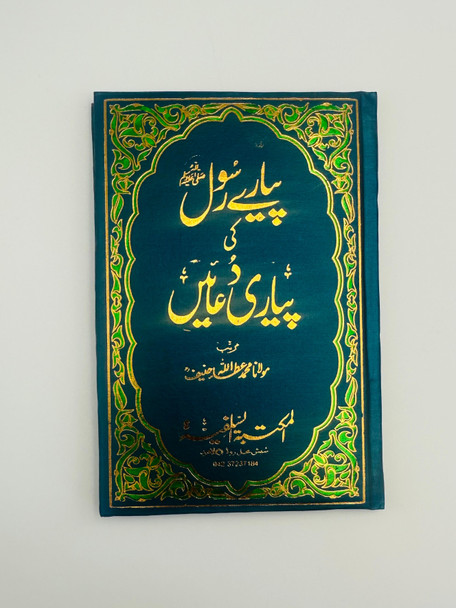 پیارے رسول ﷺ
کی
پیاری دعائیں
مرتب
مولانا محمد عطاء اللہ حنیف
المکتبۃ السلفیۃ
شیش محل روڈ لاہور
042 37237184